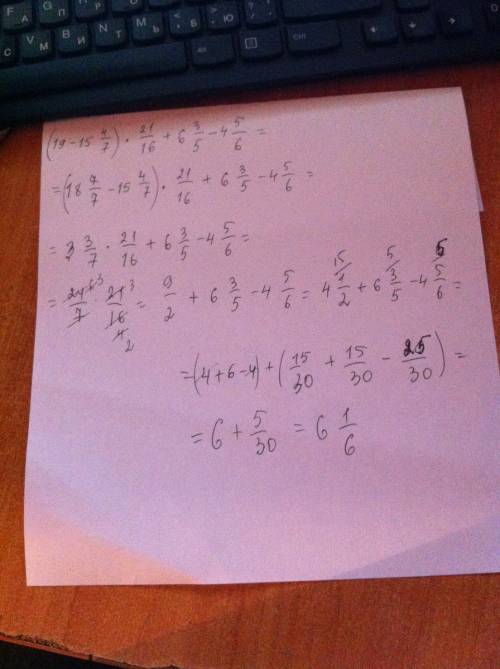 (19 - 15 4/7) · 21/16 + 6 3/5 - 4 5/6 =
= (18 7/7 - 15 4/7) · 21/16 + 6 3/5 - 4 5/6 =
= 3 3/7 · 21/16 + 6 3/5 - 4 5/6 =
= 24/7 · 21/16 = 9/2 + 6 3/5 - 4 5/6 = 4 1/2 + 6 3/5 - 4 5/6 =
= (4 + 6 - 4) + (15/30 + 15/30 - 25/30) =
= 6 + 5/30 = 6 1/6